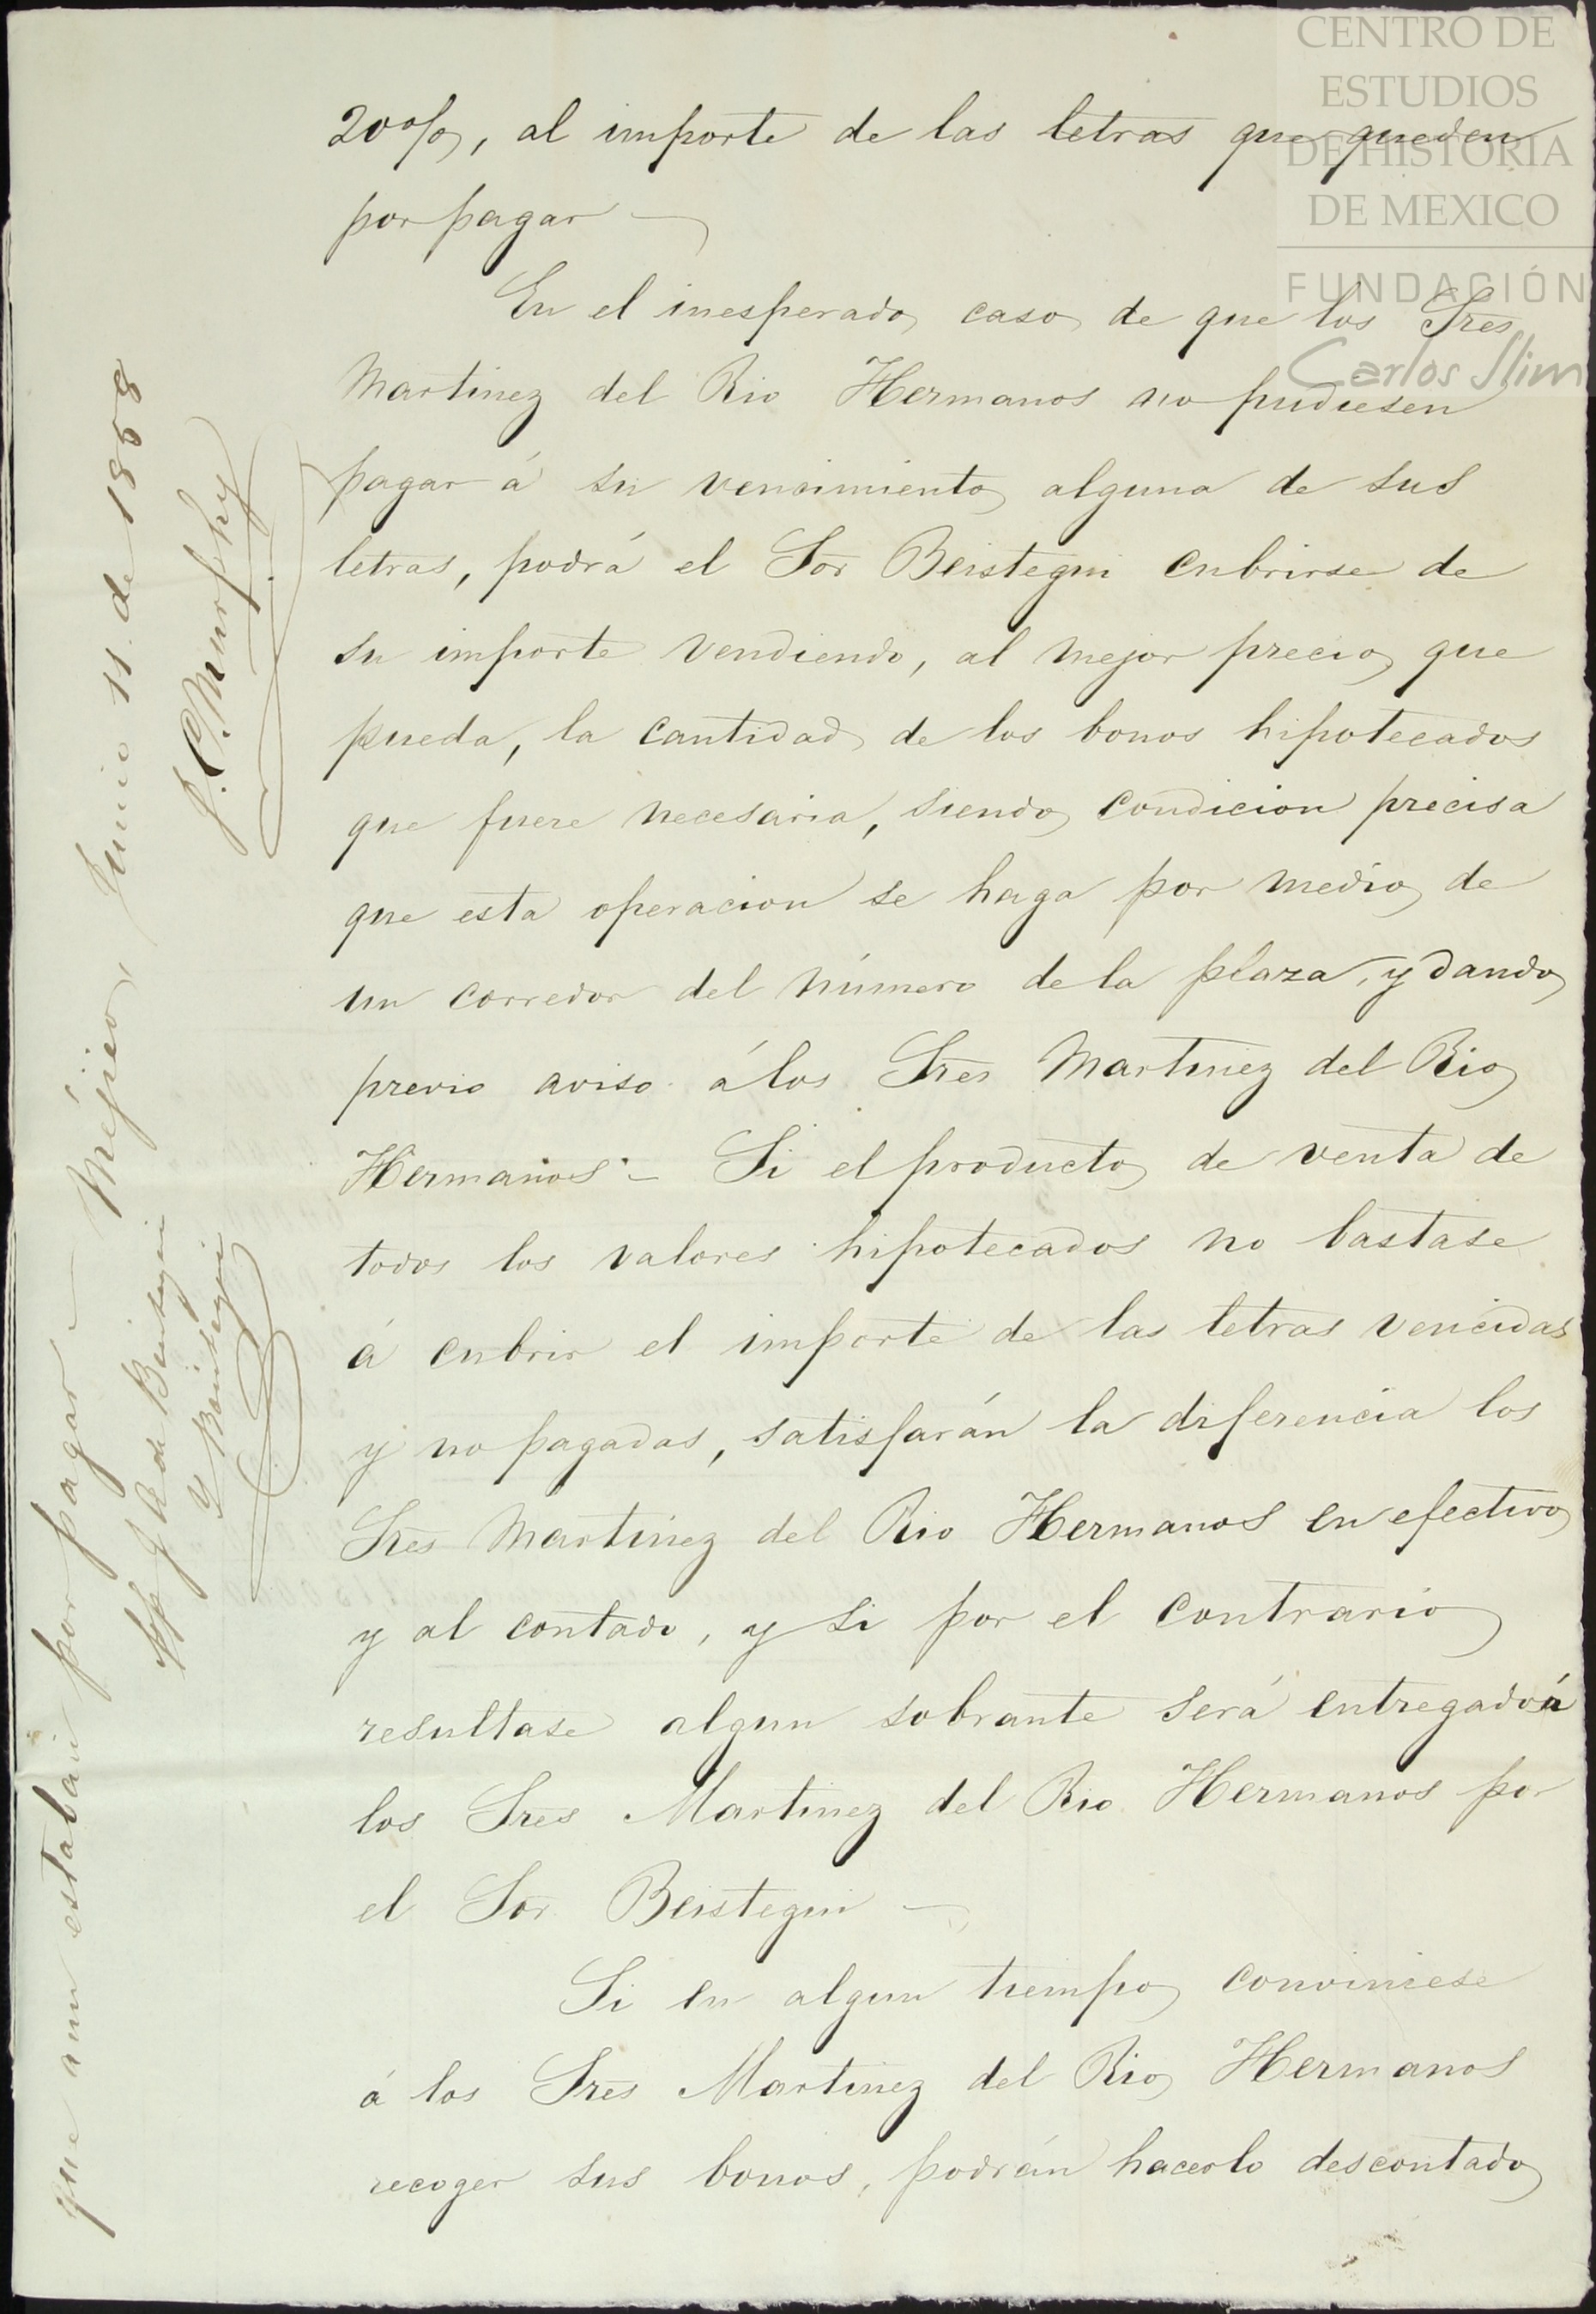 20%, al importe de las letras que queden
por pagar —
En el inesperado caso de que los Sres
Martinez del Rio Hermanos no pudiesen
pagar á su vencimiento alguna de sus
letras, podrá el Sor Beistegui cubrirse de
su importe vendiendo, al mejor precio que
pueda, la cantidad de los bonos hipotecados
que fuere necesaria, siendo condicion precisa
que esta operacion se haga por medio de
un corredor del número de la plaza, y dando
previo aviso á los Sres Martinez del Rio
Hermanos - Si el producto de venta de
todos los valores hipotecados no bastase
á cubrir el importe de las letras vencidas
y no pagadas, satisfarán la diferencia los
Sres Martinez del Rio Hermanos en efectivo
y al contado, y si por el contrario
resultase algun sobrante será entregado á
los Sres Martinez del Rio Hermanos por
el Sor Beistegui —
Si en algun tiempo conviniese
á los Sres Martinez del Rio Hermanos
recoger sus bonos, podrán hacerlo descontado
que aun estaban por pagar — Méjico, Junio 11. de 1868
pp J A de Beistegui
Y Beistegui
J. C. Murphy
CENTRO DE
ESTUDIOS
DE HISTORIA
DE MEXICO
FUNDACIÓN
Carlos Slim